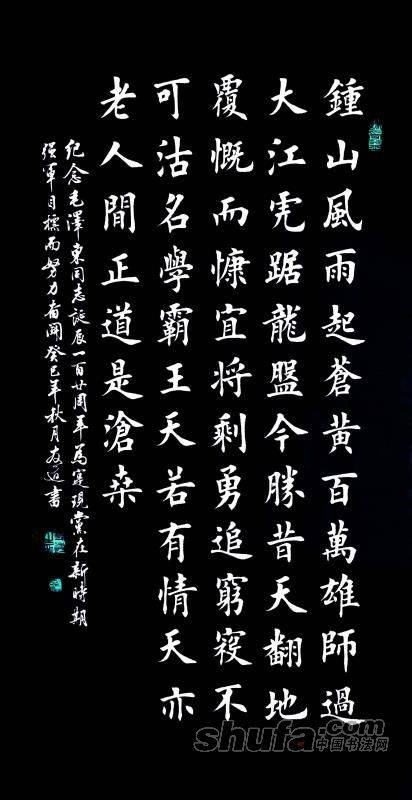 鍾山風雨起蒼黄百萬雄師過
大江虎踞龍盤今勝昔天翻地
覆慨而慷宜将剩勇追窮寇不
可沽名學霸王天若有情天亦
老人間正道是滄桒
纪念毛澤東同志誕辰一百廿周年為実現黨在新時期
强軍目標而努力奋鬥癸巳年秋月友道書
shufa.com
中国书法网